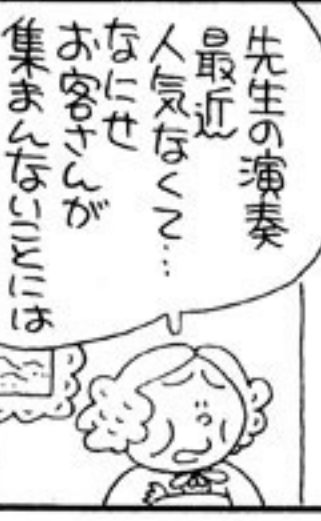 先生の演奏
最近
人気なくて…
なにせ
お客さんが
集まんないことには